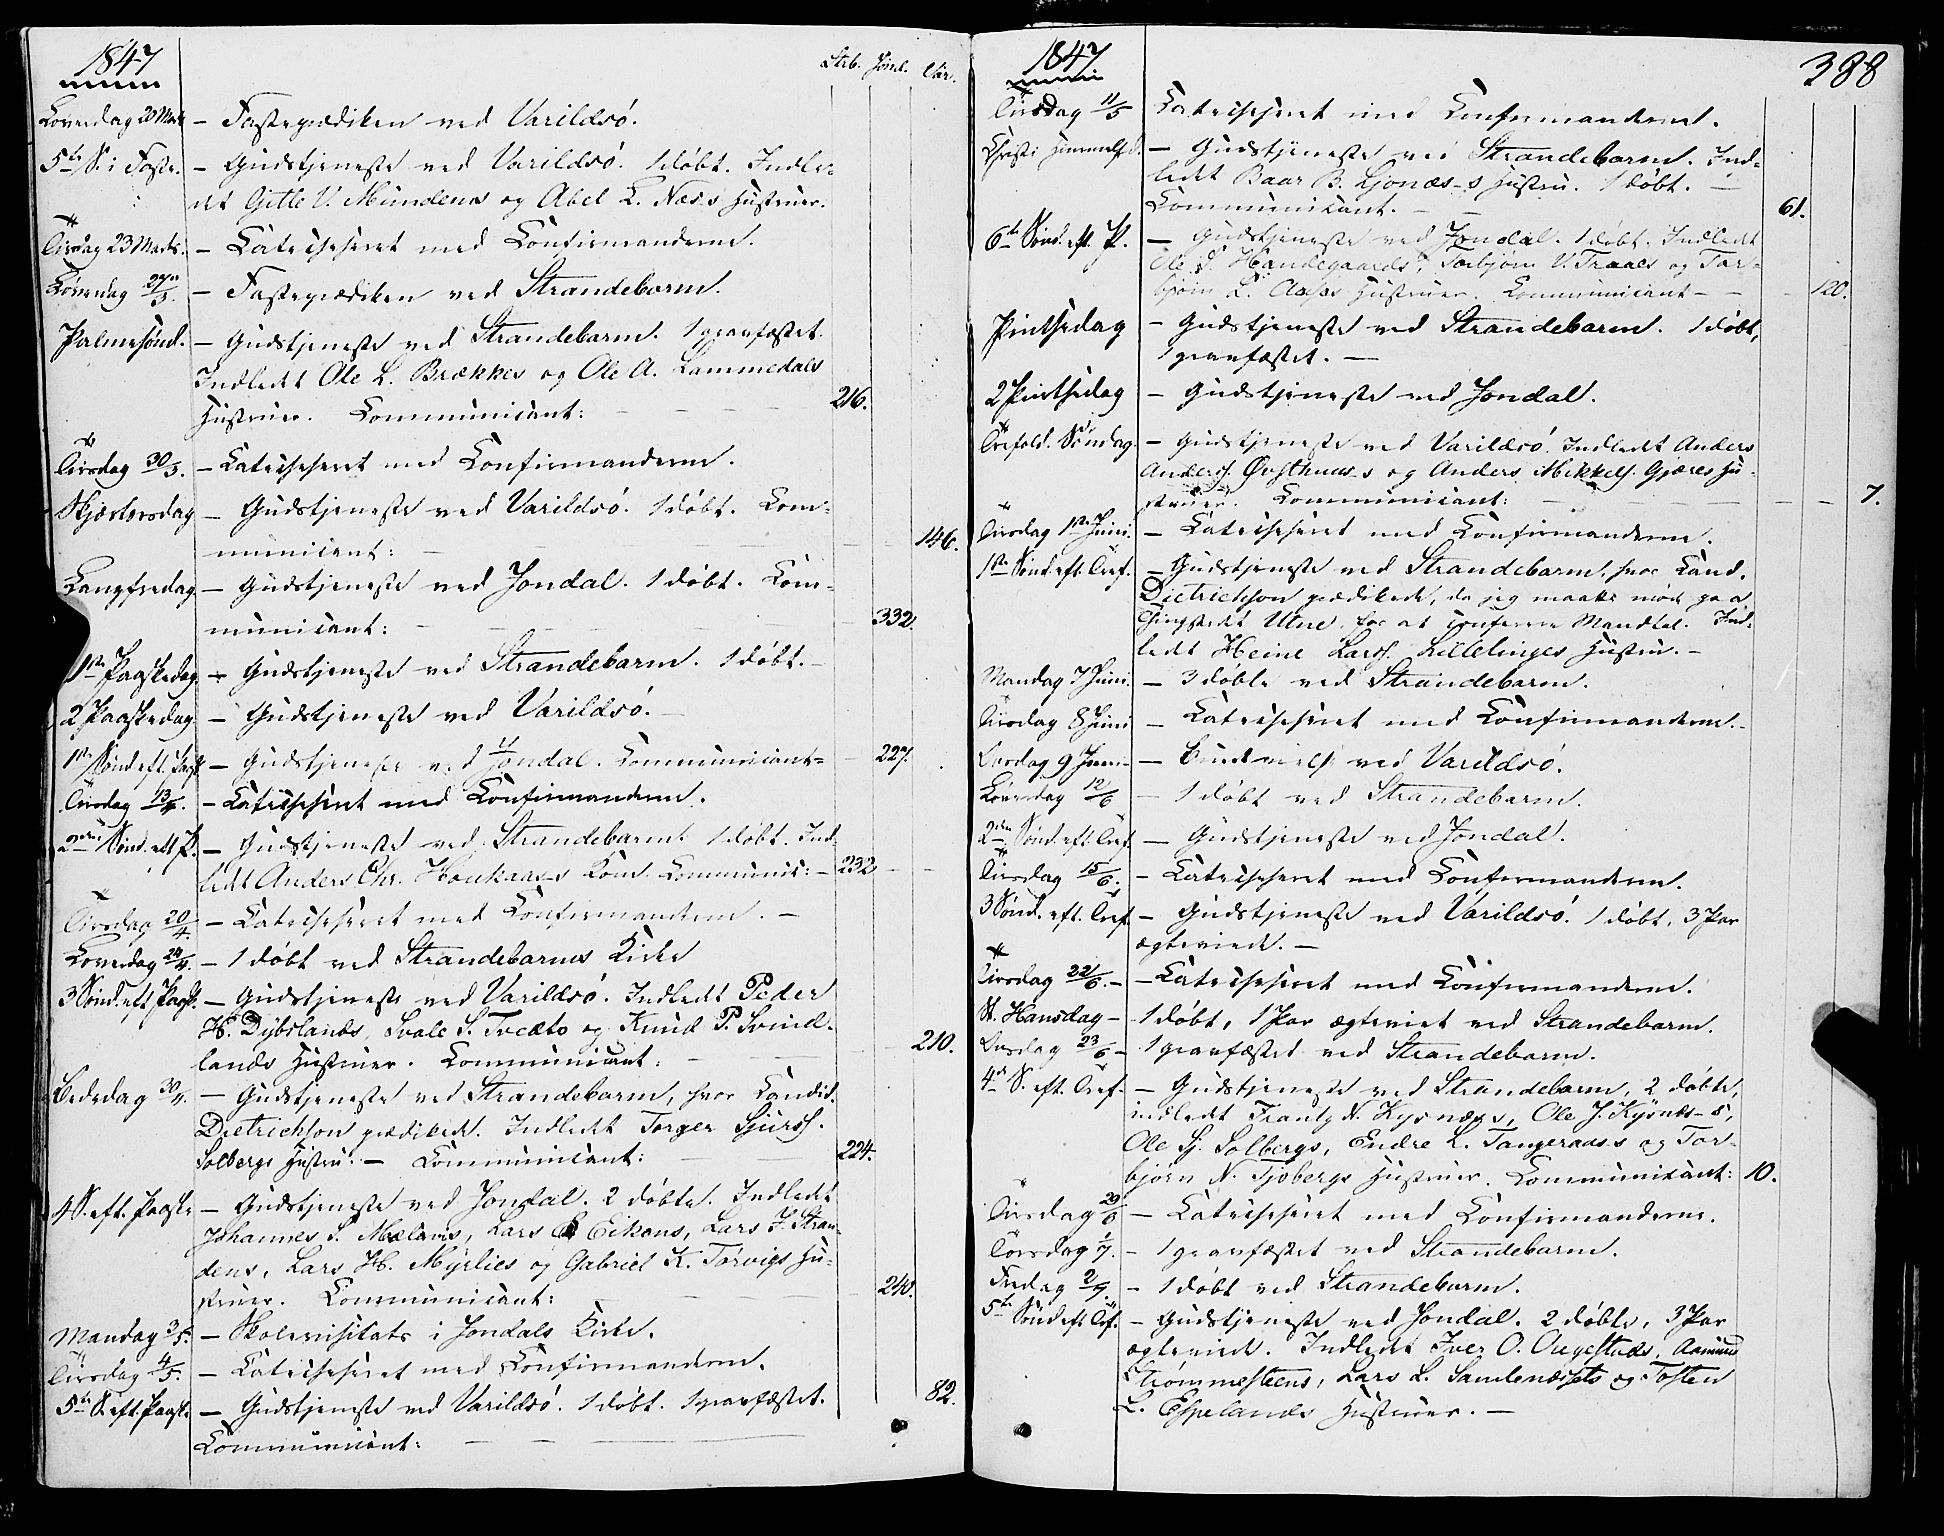 1847
Strb. Jond. Var.
Løverdag 20 Marts – Fasteprædiken ved Varildsö.
5te S. i Faste. – Gudstjeneste ved Varildsö. 1 döbt. Indle-
det Gitle V. Mundems og Abel L. Næs-s Hustruer.
Tirsdag 23 Marts. – Catechiseret med Confirmanderne.
Løverdag 27/3. – Fasteprædiken ved Strandebarm.
Palmesönd. – Gudstjeneste ved Strandebarm. 1 gravfæstet.
Indledt Ole L. Brækkes og Ole A. Lammedals
Hustruer. Communicant: – – – – 216.
Tirsdag 30/3. – Catechiseret med Confirmanderne.
Skjærtorsdag – Gudstjeneste ved Varildsö. 1 döbt. Com-
municant: – – – – 146.
Langfredag – Gudstjeneste ved Jondal. 1 döbt. Com-
municant: – – – – 332.
1ste Paaskedag – Gudstjeneste ved Strandebarm. 1 döbt. –
2 Paaskedag – Gudstjeneste ved Varildsö. –
1ste Sönd. eft. Paask. – Gudstjeneste ved Jondal. Communicant= – 227.
Tirsdag 13/4. – Catechiseret med Confirmanderne.
2den Sönd. eft P. – Gudstjeneste ved Strandebarm. 1 döbt. Ind-
ledt Anders Chr. Houkaas-s Kone. Communic: – 232 – –
Tirsdag 20/4. – Catechiseret med Confirmanderne. –
Löverdag 24/4. – 1 döbt ved Strandebarms Kirke
3 Sönd. eft. Paask. – Gudstjeneste ved Varildsö. Indledt Peder
H. Dybslands, Svale S. Tveito og Knud P. Svind-
lands Hustruer. Communicant: – – 210.
Bededag 30/4. – Gudstjeneste ved Strandebarm, hvor Candid.
Dietrichson prædikede. Indledt Torger Sjurss.
Solbergs Hustru. – Communicant: – – 224.
4 S. eft. Paaske – Gudstjeneste ved Jondal. 2 döbte. Indledt
Johannes S. Mælands, Lars Eikens, Lars J. Stran-
dens, Lars H. Myrlies og Gabriel K. Törvigs Hu-
struer. Communicant: – – – 240.
Mandag 3/5. – Skolevisitats i Jondals Kirke.
Tirsdag 4/5. – Catechiseret med Confirmanderne.
5te S. eft. Paaske – Gudstjeneste ved Varildsö. 1 döbt. 1 gravfæstet. 82.
Communicant: – – –
1847
388
Tirsdag 11/5 Catechiseret med Confirmanderne.
Christi Himmelfd. – Gudstjeneste ved Strandebarm. Ind-
ledt Baar B. Ljonæs-s Hustru. 1 döbt. –
Communicant. – – 61.
6te Sönd. eft. P. – Gudstjeneste ved Jondal. 1 döbt. Indledt
Ole S. Handegaards, Torbjörn V. Traaes og Tor-
björn L. Aases Hustruer. Communicant – – – 120.
Pintsedag – Gudstjeneste ved Strandebarm. 1 döbt,
1 gravfæstet. –
2 Pintsedag – Gudstjeneste ved Jondal.
Trefold. Söndag. – Gudstjeneste ved Varildsö. Indledt Anders
Anderss. Östhuus-s og Anders Mikkels. Gjæres Hu-
struer. Communicant: – – – 7.
Tirsdag 1ste Juni. – Catechiseret med Confirmanderne.
1ste Sönd. eft. Tref. – Gudstjeneste ved Strandebarm, hvor Cand.
Dietrichson prædikede, da jeg maatte möde paa
Thingstedet Utne for at conferere Mandtal. Ind-
ledt Heine Larss. Lillelinges Hustru. –
Mandag 7 Juni. – 3 döbte ved Strandebarm.
Tirsdag 8 Juni – Catechiseret med Confirmanderne. –
Onsdag 9 Juni – Brudevielse ved Varildsö.
Löverdag 12/6 – 1 döbt ved Strandebarm.
2den Sönd. eft. Tref. – Gudstjeneste ved Jondal.
Tirsdag 15/6. – Catechiseret med Confirmanderne.
3 Sönd. eft. Tref. – Gudstjeneste ved Varildsö. 1 döbt, 3 Par
ægteviede. –
Tirsdag 22/6. – – Catechiseret med Confirmanderne.
St. Hansdag – 1 döbt, 1 Par ægteviet ved Strandebarm.
Onsdag 23/6 – 1 gravfæstet ved Strandebarm.
4de S. eft. Tref. – Gudstjeneste ved Strandebarm, 2 döbte,
indledt Frantz N. Kysnæs, Ole J. Kysnæs-s,
Ole Sj. Solbergs, Endre L. Tangeraas-s og Tor-
björn N. Tjobergs Hustruer. Communicant: 10.
Tirsdag 29/6 – Catechiseret med Confirmanderne.
Torsdag 1/7. – 1 gravfæstet ved Strandebarm.
Fredag 2/7. – 1 döbt ved Strandebarm.
5te Sönd. eft. Tref. – Gudstjeneste ved Jondal. 2 döbte, 3 Par
ægteviede. Indledt Iver O. Augestads, Aamund
Strömmesteens, Lars L. Samlenæssets og Tosten
L. Espelands Hustruer. –